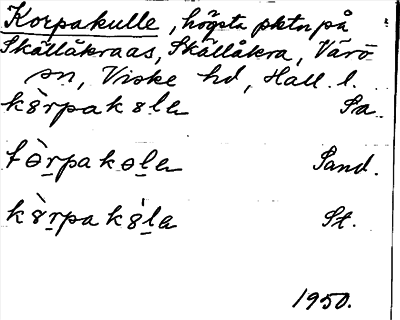 Korpakulle, högsta pktn på
Skällåkraas, Skällåkra, Värö
sn, Viske hd, Hall. l.
kòrpakola Sa.
kòrpakola Sand.
kòrpakola St.
1950.